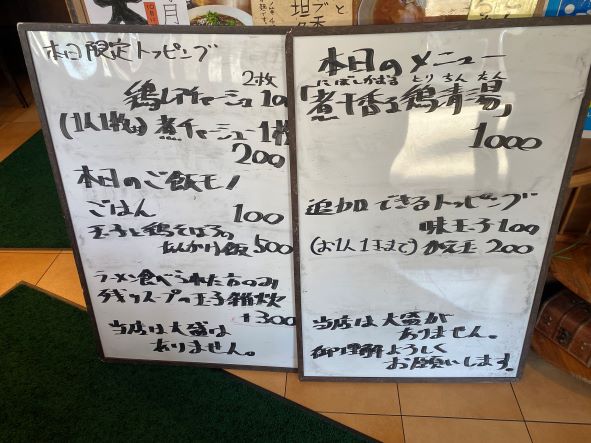 本日限定トッピング
2枚
鶏レアチャーシュー100
(1人1枚) 煮チャーシュー1枚
200
本日のご飯モノ
ごはん 100
玉子と鶏そぼろの
あんかけ飯 500
ラーメン食べられた方のみ
残りスープの玉子雑炊
+300
当店は大盛は
ありません。
本日のメニュー
にぼしかおる とり ちん たん
「煮干香る鶏青湯」
1000
追加できるトッピング
味玉子100
(お1人1玉まで) かえ玉 200
当店は大盛が
ありません。
御理解よろしく
お願いします。